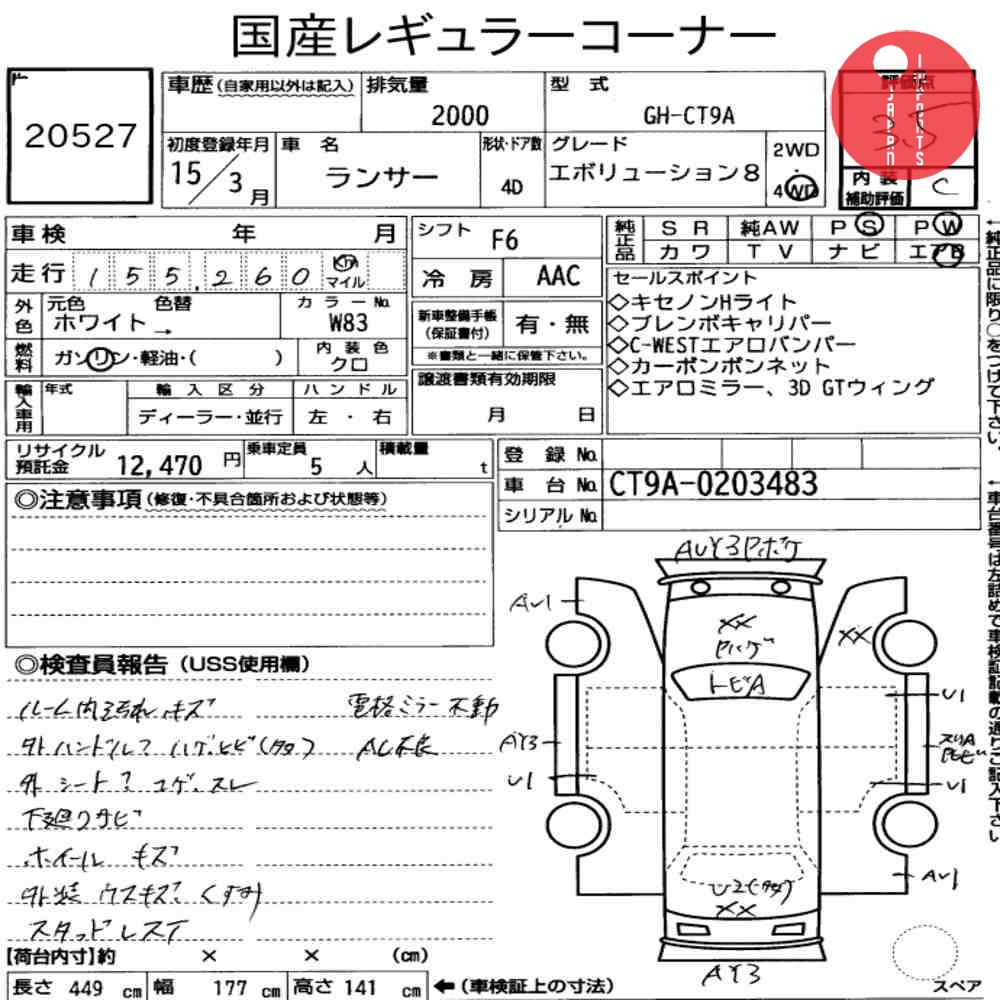 国産レギュラーコーナー
20527
車歴(自家用以外は記入)
排気量
2000
型 式
GH-CT9A
評価点
3.5
JAPAN
IMPORTS
初度登録年月
15/3月
車 名
ランサー
形状・ドア数
4D
グレード
エボリューション8
2WD
・
4WD
内装
補助評価
C
車検 年 月
シフト
F6
純正品
S R 純AW P S P W
カワ T V ナビ エアB
走行 155,260 Km マイル
冷房
AAC
セールスポイント
◇キセノンHライト
◇ブレンボキャリパー
◇C-WESTエアロバンパー
◇カーボンボンネット
◇エアロミラー、3D GTウィング
外色
元色 色替
ホワイト→
カラーNo.
W83
新車整備手帳
(保証書付)
有・無
※書類と一緒に保管下さい。
燃料
ガソリン・軽油・( )
内装色
クロ
譲渡書類有効期限
月 日
輸入車用
年式
輸入区分
ディーラー・並行
ハンドル
左・右
リサイクル
預託金
12,470 円
乗車定員
5 人
積載量
t
登録No.
車台No.
CT9A-0203483
シリアルNo.
←純正品に限り○をつけて下さい。
←車台番号は左詰めで車検証記載の通りご記入下さい
◎注意事項(修復・不具合箇所および状態等)
◎検査員報告(USS使用欄)
ルーム内汚れ、キズ 電格ミラー不動
外 ハンドル? ハゲヒビ(タタ) AC不良
外 シート? コゲ、スレ
下廻りサビ
ホイール キズ
外装 ウスキズ、くすみ
スタッドレスT
AUY3Pボケ
AU1
XX
Pハゲ
XX
トビA
U1
AY3
U1
U1
U2(タタ)
XX
AU1
AY3
スペア
【荷台内寸】約 × × (cm)
長さ 449 cm 幅 177 cm 高さ 141 cm ←(車検証上の寸法)